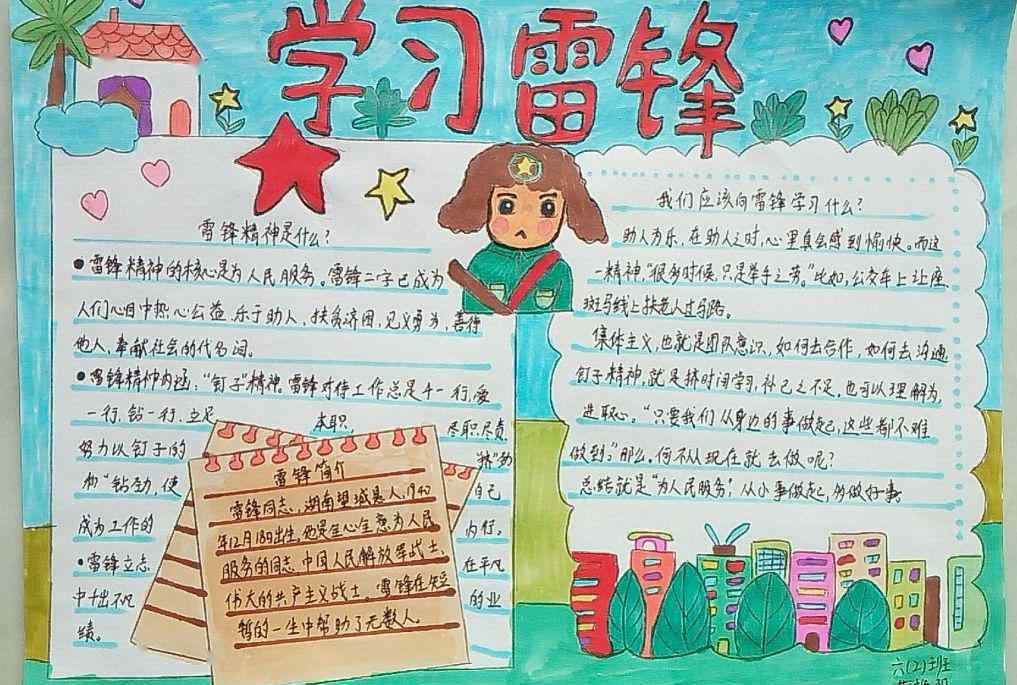 学习雷锋
雷锋精神是什么?
●雷锋精神的核心是为人民服务。雷锋二字已成为
人们心目中热心公益、乐于助人、扶贫济困、见义勇为、善待
他人,奉献社会的代名词。
●雷锋精神内涵:“钉子”精神。雷锋对待工作总是干一行,爱
一行,钻一行。立足 本职, 尽职尽责
努力以钉子的 “挤”劲
和“钻”劲,使 自己
成为工作的 内行。
●雷锋立志 在平凡
中十出不凡 的业
绩。
雷锋简介
雷锋同志,湖南望城县人,1940
年12月18日出生,他是全心全意为人民
服务的同志,中国人民解放军战士,
伟大的共产主义战士。雷锋在短
暂的一生中帮助了无数人。
我们应该向雷锋学习什么?
助人为乐,在助人之时,心里真会感到愉快。而这
一精神,“很多时候只是举手之劳。”比如,公交车上让座
斑马线上扶老人过马路。
集体主义,也就是团队意识,如何去合作,如何去沟通
钉子精神,就是挤时间学习,补己之不足,也可以理解为,
进取心。“只要我们从身边的事做起,这些都不难
做到”,那么,何不从现在就去做呢?
总结就是“为人民服务”,从小事做起,多做好事
六(2)班